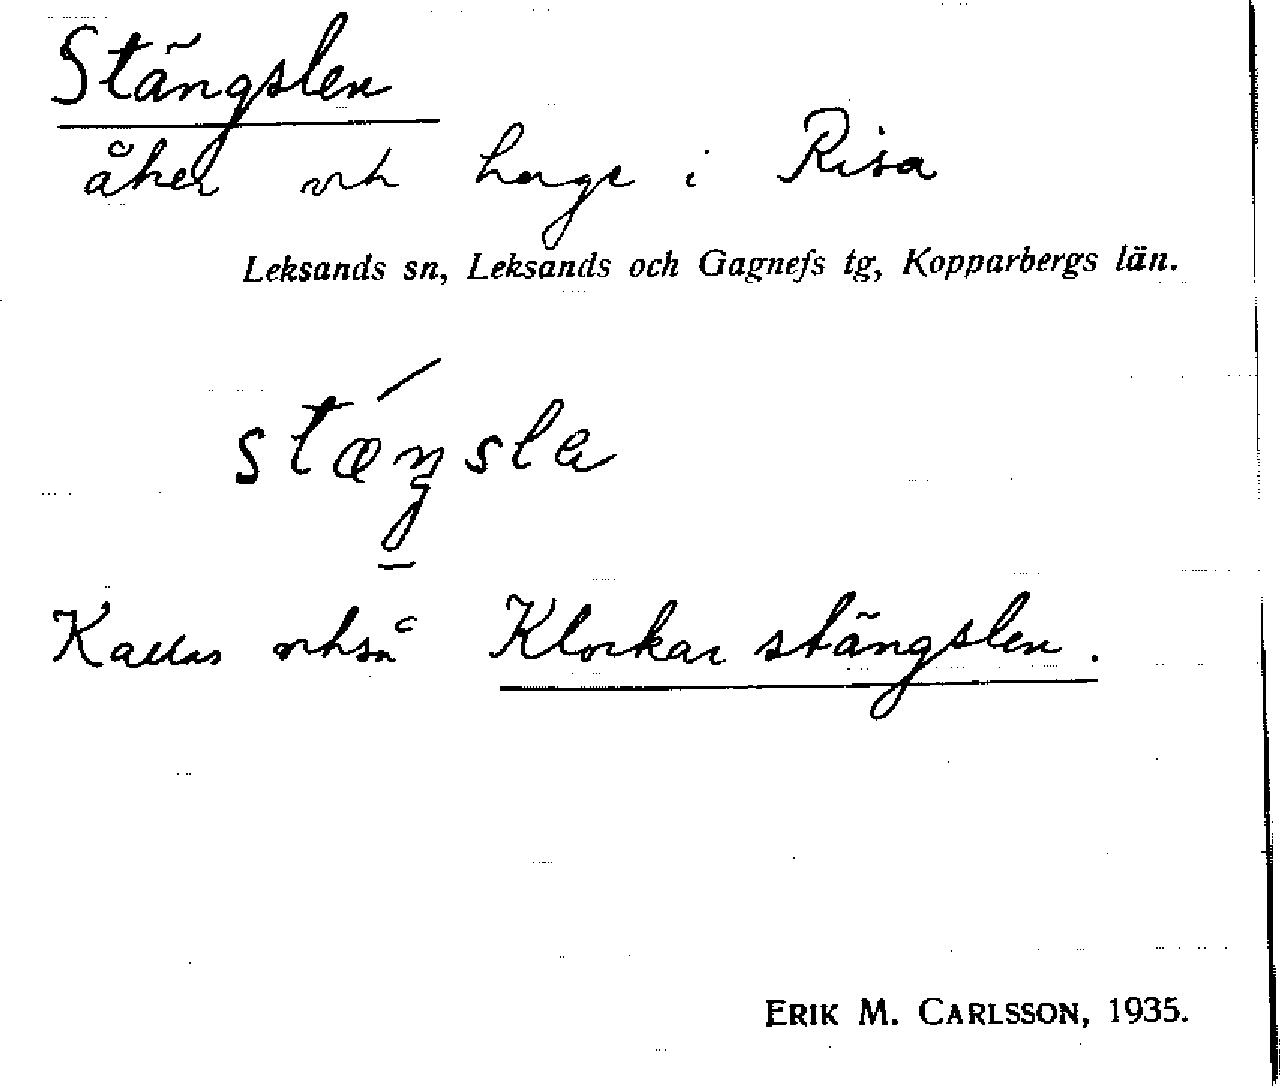 Stängslen
åker och hage i Risa
Leksands sn, Leksands och Gagnefs tg, Kopparbergs län.
stæŋsla
Kallas också Klockar stängslen.
ERIK M. CARLSSON, 1935.